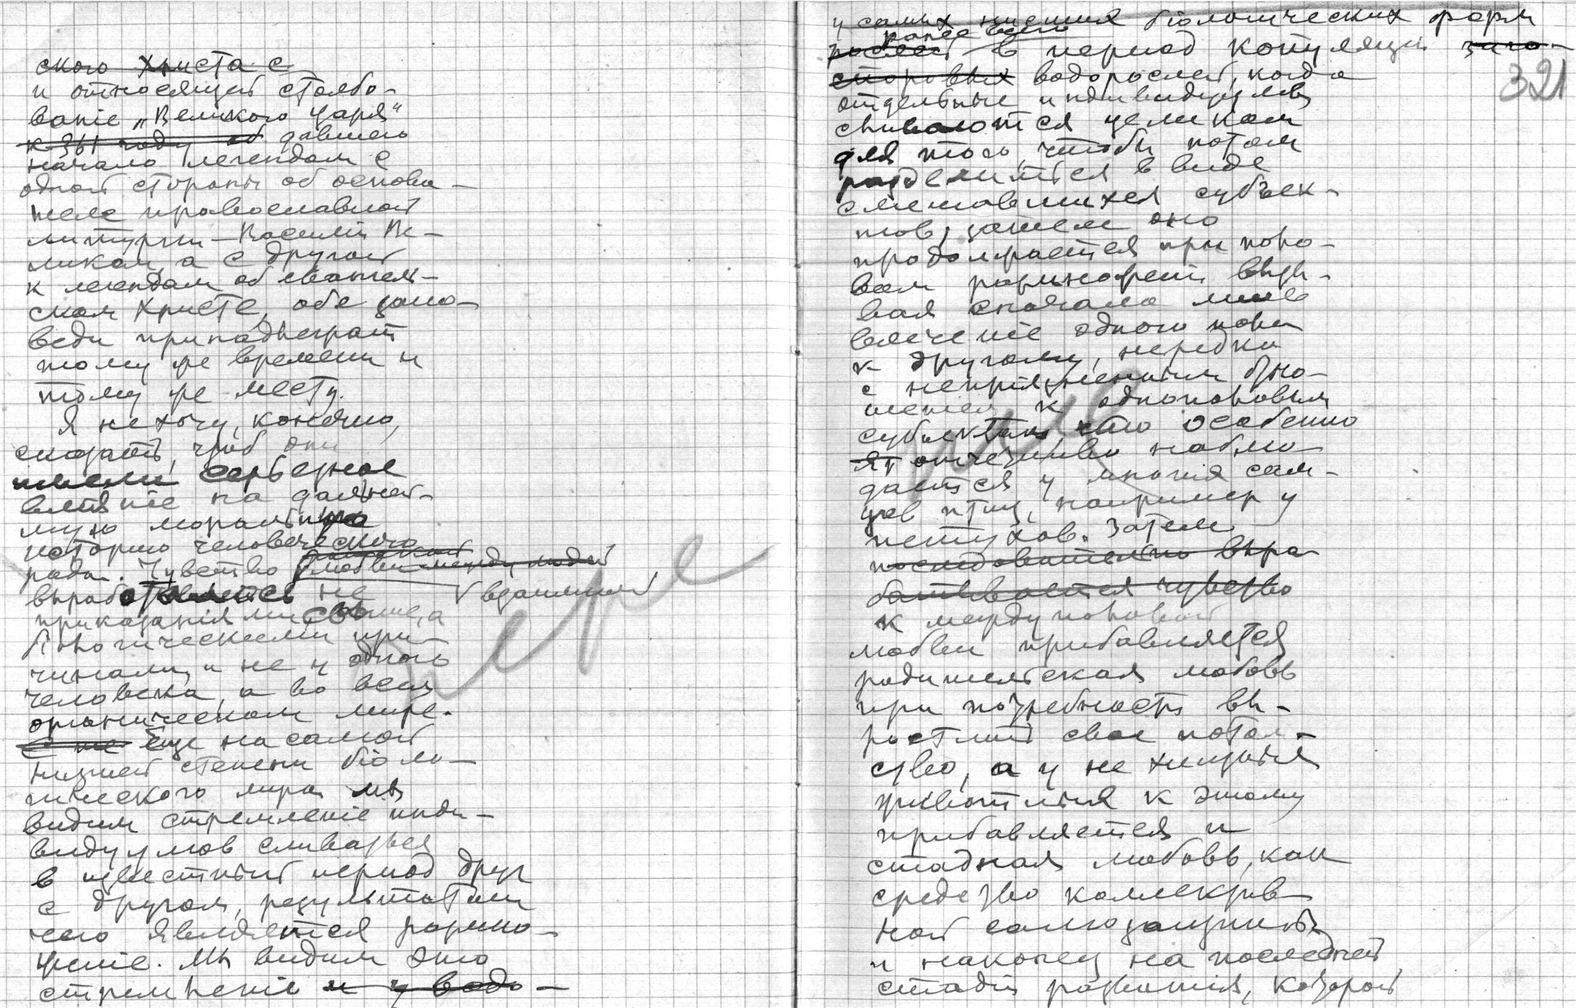 ского Христа с
и относящей столбо-
ваніе „Великого Царя“
к 381 году об давшего
начало легендам с
одной стороны об основа-
теле православной
литургии – Василии Ве-
ликом а с другой
к легендам об евангель-
ском Христе, обе запо-
веди принадлежат
тому же времени и
тому же месту.
Я не хочу, конечно,
сказать, чтоб они
имели серьезное
вліяніе на дальней-
шую моральную
историю человеческого
рода. Чувство любви между людей
выработалось не взаимной
приказаніями свыше, а
біологическими при-
чинами, и не у одного
человека, а во всем
органическом мире.
Еще на самой
низшей степени біоло-
гического мира мы
видим стремленіе инди-
видуумов сливаться
в известный период друг
с другом, результатом
чего является размно-
женіе. Мы видим это
стремленіе и у водо-
у самых низших біологических форм
ранее всего
в период копуляции зиго-
споровых водорослей, когда
321
отдельные индивидуумы
сливаются целиком
для того, чтобы потом
разделиться в виде
смешавшихся субъек-
тов, затем оно
продолжается при поло-
вом размножении, вызы-
вая сначала лишь
влечение одного пола
к другому, нередко
с неприязненным отно-
шением к однополовым
субъектам, что особенно
отчетливо наблю-
дается у многих сам-
цов птиц, например у
петухов. Затем
последовательно выра-
батывается чувство
к междуполовой
любви прибавляется
родительская любовь
при потребности вы-
ростить свое потом-
ство, а у не хищных
животных к этому
прибавляется и
стадная любовь, как
средство коллектив-
ной самозащиты
и наконец на последней
стадіи развития, которой